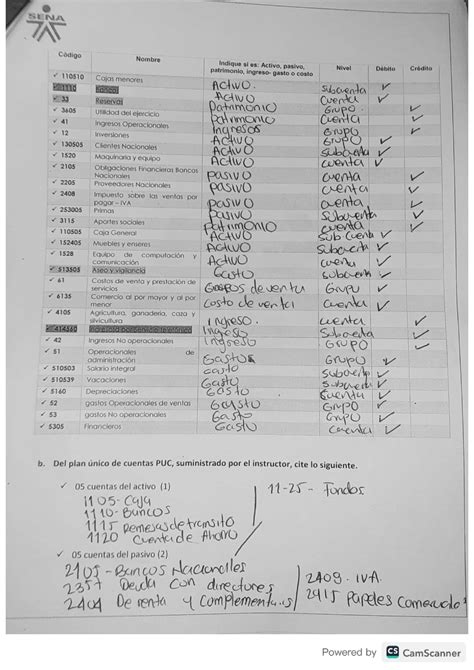 SENA
Código Nombre Indique si es: Activo, pasivo, patrimonio, ingreso- gasto o costo Nivel Débito Crédito
✓ 110510 Cajas menores Activo. Subcuenta ✓
✓ 1110 Bancos Activo Cuenta ✓
✓ 33 Reservas Patrimonio Grupo. ✓
✓ 3605 Utilidad del ejercicio Patrimonio Cuenta ✓
✓ 41 Ingresos Operacionales Ingresos Grupo ✓
✓ 12 Inversiones Activo Grupo ✓
✓ 130505 Clientes Nacionales Activo Subcuenta ✓
✓ 1520 Maquinaria y equipo Activo Cuenta ✓
✓ 2105 Obligaciones Financieras Bancos Nacionales pasivo Cuenta ✓
✓ 2205 Proveedores Nacionales pasivo Cuenta ✓
✓ 2408 Impuesto sobre las ventas por pagar – IVA pasivo Cuenta ✓
✓ 253005 Primas pasivo Subcuenta ✓
✓ 3115 Aportes sociales Patrimonio Cuenta ✓
✓ 110505 Caja General Activo Sub Cuenta ✓
✓ 152405 Muebles y enseres Activo Subcuenta ✓
✓ 1528 Equipo de computación y comunicación Activo Cuenta ✓
✓ 513505 Aseo y vigilancia Gasto Subcuenta ✓
✓ 61 Costos de venta y prestación de servicios de venta Grupo ✓
✓ 6135 Comercio al por mayor y al por menor Costo de venta Cuenta ✓
✓ 4105 Agricultura, ganadería, caza y silvicultura Ingreso. Cuenta ✓
✓ Ingreso Subcuenta ✓
✓ 42 Ingresos No operacionales Ingreso Grupo ✓
✓ 51 Operacionales de administración Gastos Grupo ✓
✓ 510503 Salario integral Gasto Subcuenta ✓
✓ 510539 Vacaciones Gasto Subcuenta ✓
✓ 5160 Depreciaciones Gasto Cuenta ✓
✓ 52 gastos Operacionales de ventas Gasto Grupo ✓
✓ 53 gastos No operacionales Gasto Grupo ✓
✓ 5305 Financieros Gasto Cuenta ✓
b. Del plan único de cuentas PUC, suministrado por el instructor, cite lo siguiente.
✓ 05 cuentas del activo (1)
1105- Caja
11-25 - Fondos
1110- Bancos
1115 Remesas de transito
1120 Cuenta de Ahorro
✓ 05 cuentas del pasivo (2)
2105 - Bancos Nacionales
2408. IVA
2357 Deuda con directores
2415 papeles
2404 De renta y Complementarios
Powered by CS CamScanner